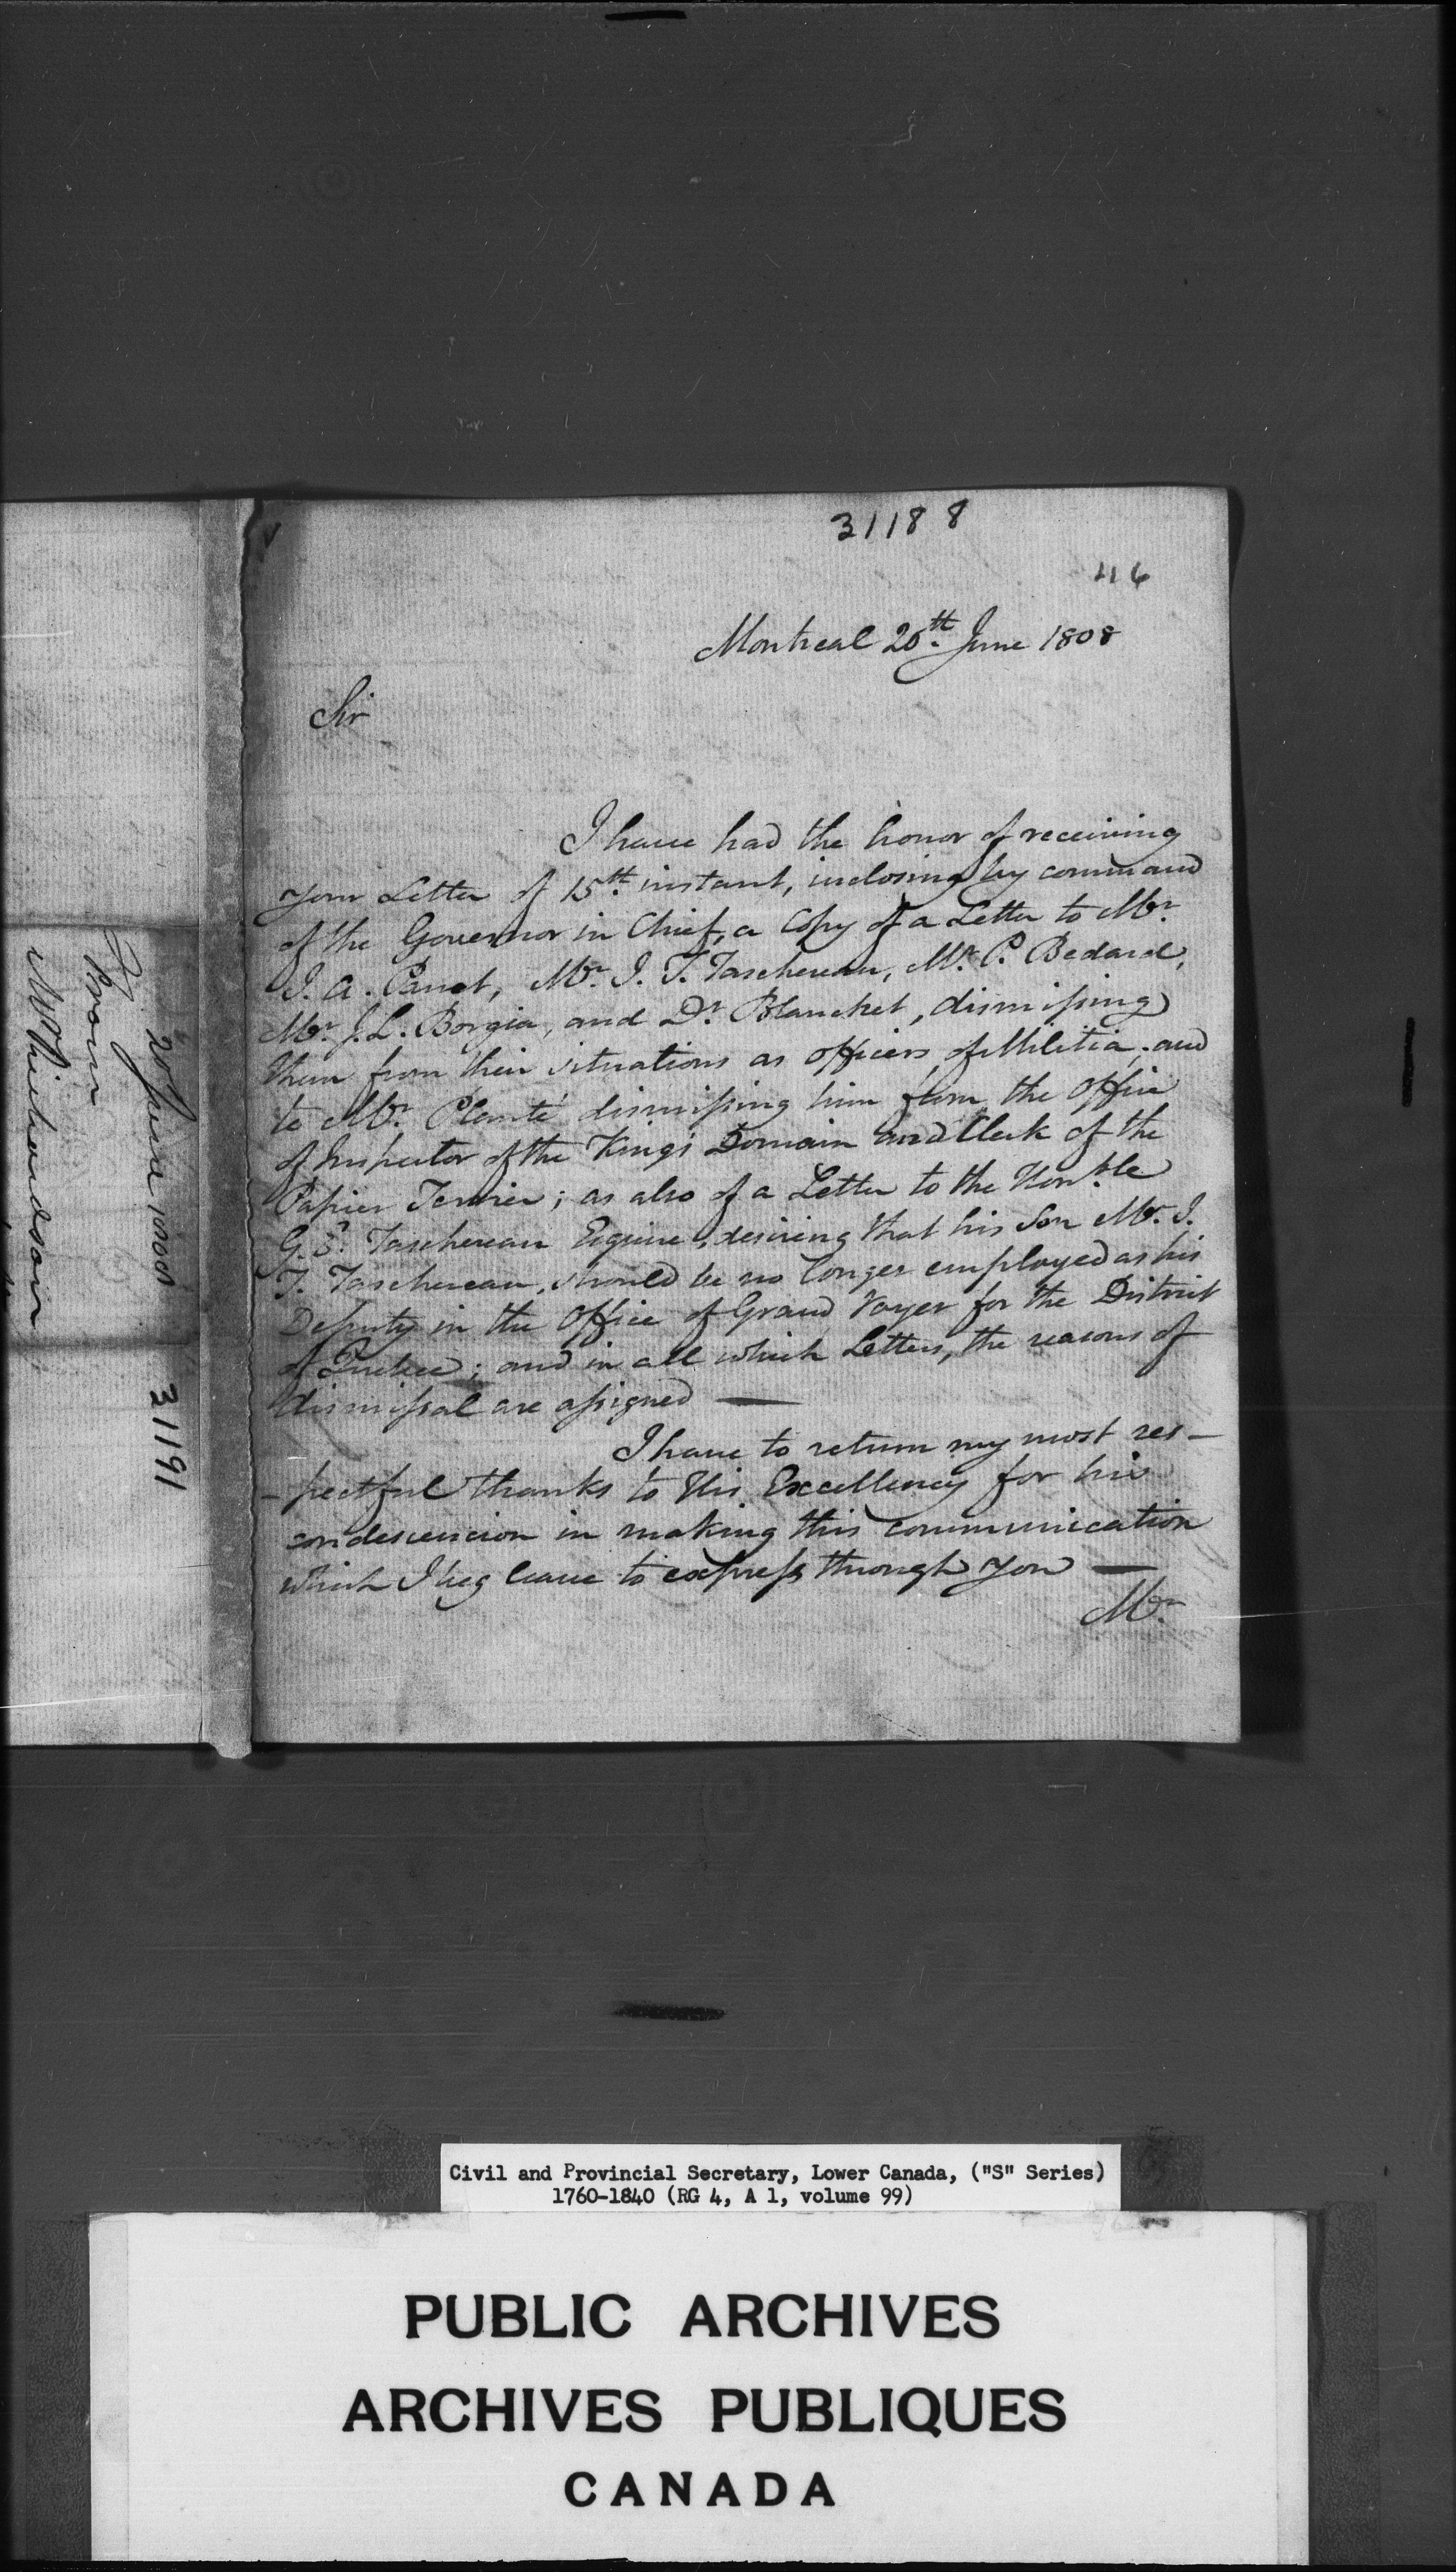 31188
116
Montreal 20th June 1808
Sir
I have had the honor of receiving
your Letter of 15th instant, inclosing by command
of the Governor in Chief, a Copy of a Letter to Mr
J. A. Panet, Mr J. T. Taschereau, Mr P. Bedard,
Mr J. L. Borgia, and Dr Blanchet, dismissing
them from their situations as officers of Militia; and
to Mr Planté dismissing him from the Office
of Inspector of the King's Domain and Clerk of the
Papier Terrier; as also of a Letter to the Honble
G. E. Taschereau Esquire, desiring that his Son Mr J.
T. Taschereau, should be no longer employed as his
Deputy in the Office of Grand Voyer for the District
of Quebec; and in all which Letters, the reasons of
dismissal are assigned —
I have to return my most res-
-pectful thanks to His Excellency for his
condescencion in making this communication
which I beg leave to express through you —
Mr
20 June 1808
Mr Richardson
31191
Civil and Provincial Secretary, Lower Canada, ("S" Series)
1760-1840 (RG 4, A 1, volume 99)
PUBLIC ARCHIVES
ARCHIVES PUBLIQUES
CANADA